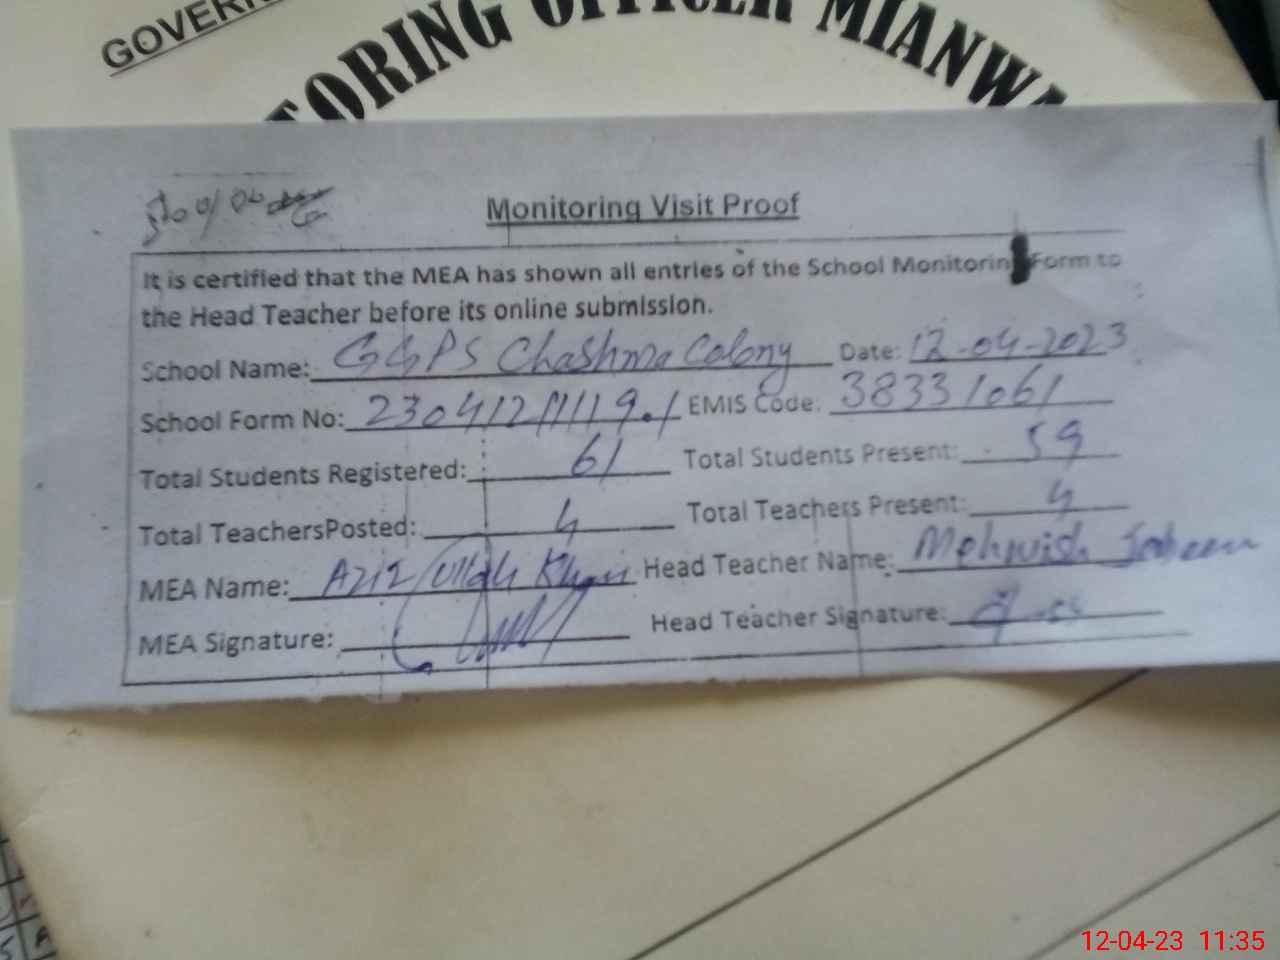 GOVERN
TORING OFFICER MIANWA
Monitoring Visit Proof
It is certified that the MEA has shown all entries of the School Monitoring Form to
the Head Teacher before its online submission.
School Name: GGPS Chashma Colony Date: 12-04-2023
School Form No: EMIS Code: 38331061
Total Students Registered: 61 Total Students Present: 59
Total TeachersPosted: 4 Total Teachers Present: 4
MEA Name: Aziz Ullah Khan Head Teacher Name: Mehwish Jabeen
MEA Signature: Head Teacher Signature:
12-04-23 11:35